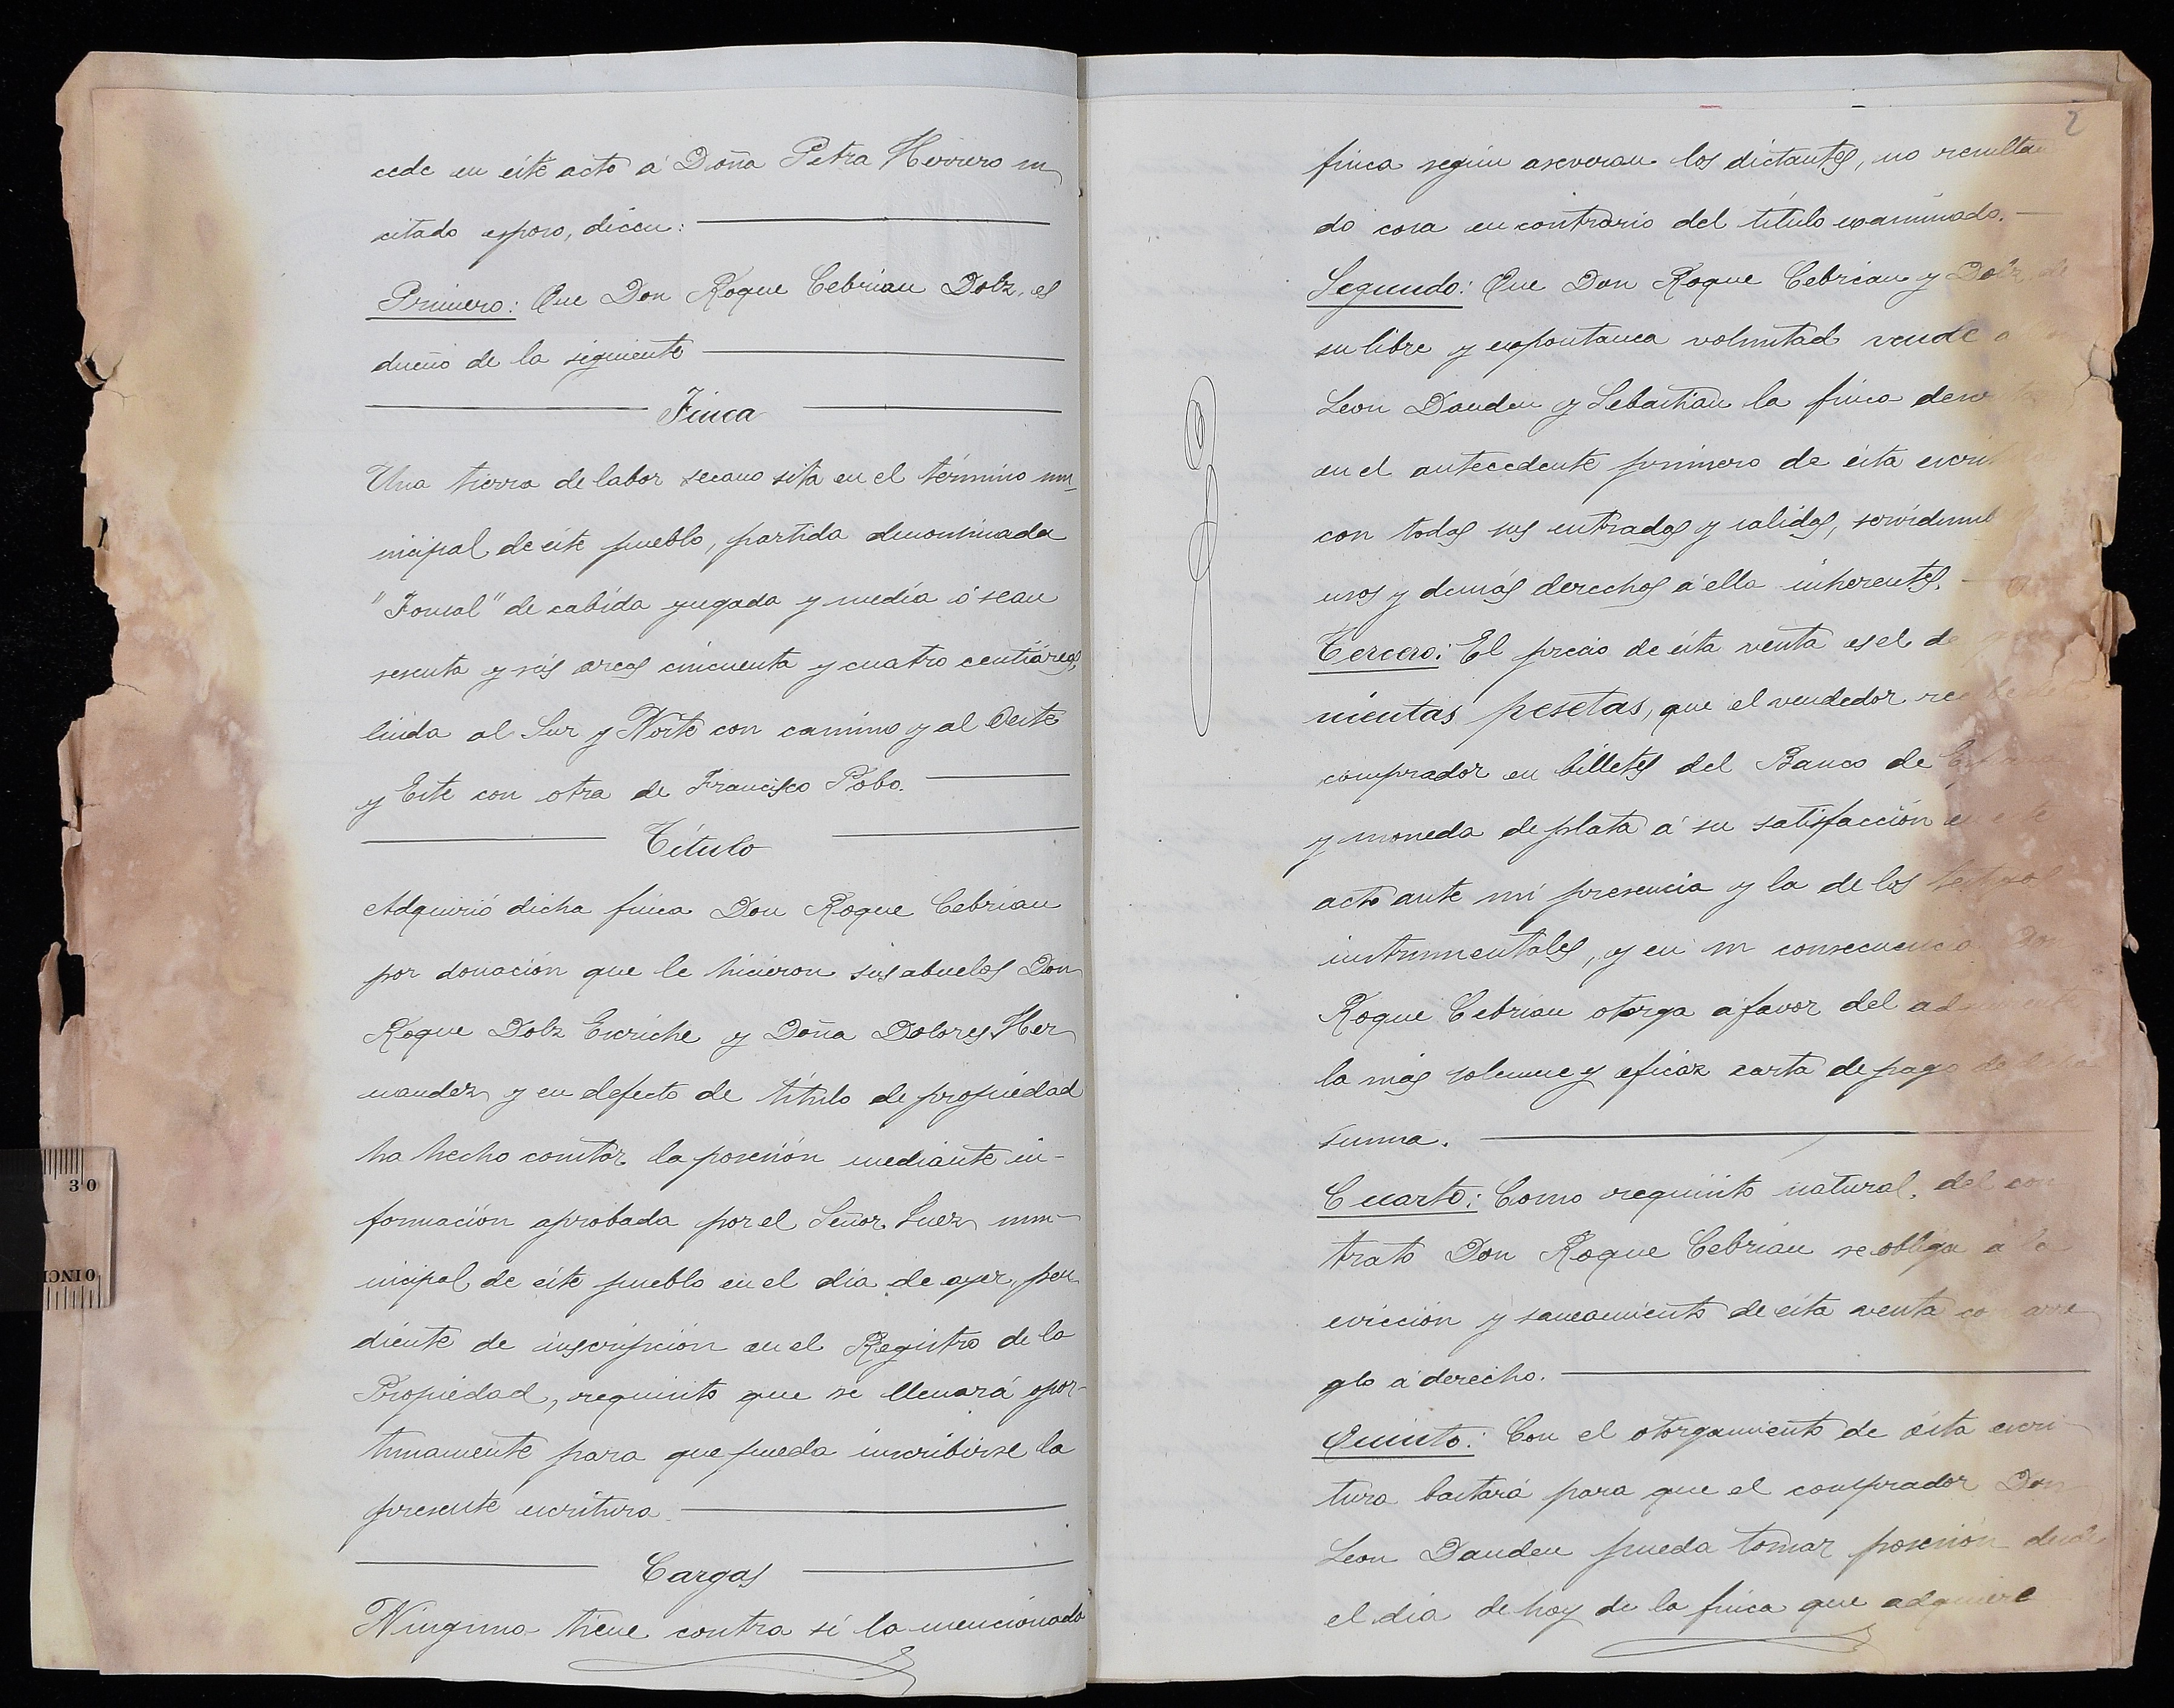 cede en éste acto á Doña Petra Herrero su
citado esposo, dicen:
Primero: Que Don Roque Cebrian Dolz, es
dueño de la siguiente
Finca
Una tierra de labor secano sita en el término mu-
nicipal de éste pueblo, partida denominada
"Fonsal" de cabida yugada y media ó sean
sesenta y seis areas cincuenta y cuatro centiáreas,
linda al Sur y Norte con camino y al Oeste
y Este con otra de Francisco Pobo.
Título
Adquirió dicha finca Don Roque Cebrian
por donación que le hicieron sus abuelos Don
Roque Dolz Escriche y Doña Dolores Her
nandez y en defecto de título de propiedad
ha hecho constar la posesión mediante in-
formación aprobada por el Señor Juez mu-
nicipal de éste pueblo en el día de ayer, pen
diente de inscripción en el Registro de la
Propiedad, requisito que se llenará opor-
tunamente para que pueda inscribirse la
presente escritura.
Cargas
Ninguna tiene contra sí la mencionada
2
finca según aseveran los dictantes, no resultan
do cosa en contrario del título examinado.
Segundo: Que Don Roque Cebrian y Dolz, de
su libre y expontanea voluntad vende a
Leon Dauden y Sebastian la finca descrita
en el antecedente primero de ésta escrit
con todas sus entradas y salidas, servidumb
usos y demás derechos á ella inherentes.
Tercero: El precio de ésta venta es el de
nientas pesetas, que el vendedor recibe del
comprador en billetes del Banco de España
y moneda de plata á su satisfacción en este
acto ante mi presencia y la de los testigos
instrumentales, y en su consecuencia Don
Roque Cebrian otorga á favor del adquirente
la más solemne y eficaz carta de pago de dicha
suma.
Cuarto: Como requisito natural, del con
trato Don Roque Cebrian se obliga á la
evicción y saneamiento de ésta venta con arre
glo á derecho.
Quinto: Con el otorgamiento de ésta escri
tura bastará para que el comprador Don
Leon Dauden pueda tomar posesión desde
el día de hoy de la finca que adquiere
30